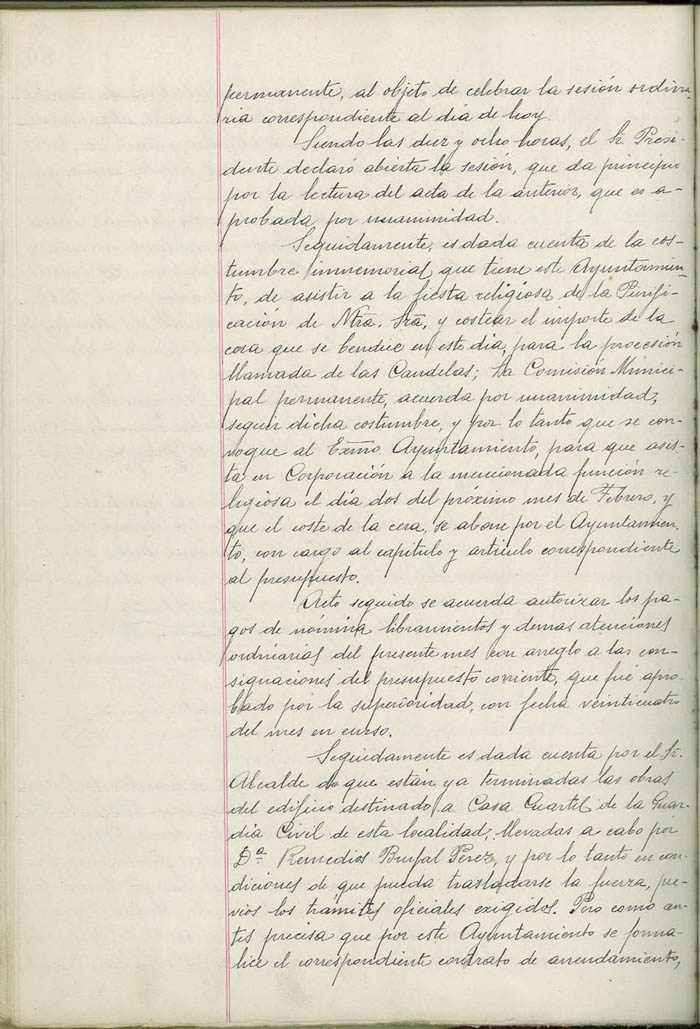 permanente, al objeto de celebrar la sesión ordina-
ria correspondiente al día de hoy.
Siendo las diez y ocho horas, el Sr. Presi-
dente declaró abierta la sesión, que da principio
por la lectura del acta de la anterior, que es a-
probada por unanimidad.
Seguidamente, es dada cuenta de la cos-
tumbre inmemorial que tiene este Ayuntamien-
to, de asistir a la fiesta religiosa de la Purifi-
cación de Ntra. Sra, y costear el importe de la
cera que se bendice en este día, para la procesión
llamada de las Candelas; La Comisión Munici-
pal permanente, acuerda por unanimidad,
seguir dicha costumbre, y por lo tanto que se con-
voque al Exmo. Ayuntamiento, para que asis-
ta en Corporación a la mencionada función re-
ligiosa el día dos del proximo mes de Febrero, y
que el coste de la cera, se abone por el Ayuntamien-
to, con cargo al capitulo y articulo correspondiente
al presupuesto.
Acto seguido se acuerda autorizar los pa-
gos de nómina libramientos y demas atenciones
ordinarias del presente mes con arreglo a las con-
signaciones del presupuesto corriente, que fué apro-
bado por la superioridad, con fecha veinticuatro
del mes en curso.
Seguidamente es dada cuenta por el Sr.
Alcalde de que están ya terminadas las obras
del edificio destinado a Casa Cuartel de la Guar-
dia Civil de esta localidad, llevadas a cabo por
Dª Remedios Brufal Pérez, y por lo tanto en con-
diciones de que pueda trasladarse la fuerza, pre-
vios los trámites oficiales exigidos. Pero como an-
tes precisa que por este Ayuntamiento se forma-
lice el correspondiente contrato de arrendamiento,